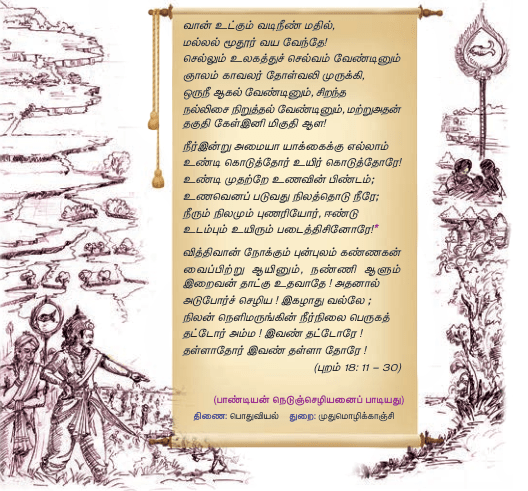 வான் உட்கும் வடிநீண் மதில்,
மல்லல் மூதூர் வய வேந்தே!
செல்லும் உலகத்துச் செல்வம் வேண்டினும்
ஞாலம் காவலர் தோள்வலி முருக்கி,
ஒருநீ ஆகல் வேண்டினும், சிறந்த
நல்லிசை நிறுத்தல் வேண்டினும், மற்றுஅதன்
தகுதி கேள்இனி மிகுதி ஆள!
நீர்இன்று அமையா யாக்கைக்கு எல்லாம்
உண்டி கொடுத்தோர் உயிர் கொடுத்தோரே!
உண்டி முதற்றே உணவின் பிண்டம்;
உணவெனப் படுவது நிலத்தொடு நீரே;
நீரும் நிலமும் புணரியோர், ஈண்டு
உடம்பும் உயிரும் படைத்திசினோரே!*
வித்திவான் நோக்கும் புன்புலம் கண்ணகன்
வைப்பிற்று ஆயினும், நண்ணி ஆளும்
இறைவன் தாட்கு உதவாதே! அதனால்
அடுபோர்ச் செழிய! இகழாது வல்லே;
நிலன் நெளிமருங்கின் நீர்நிலை பெருகத்
தட்டோர் அம்ம! இவண் தட்டோரே!
தள்ளாதோர் இவண் தள்ளா தோரே!
(புறம் 18: 11 – 30)
(பாண்டியன் நெடுஞ்செழியனைப் பாடியது)
திணை: பொதுவியல் துறை: முதுமொழிக்காஞ்சி